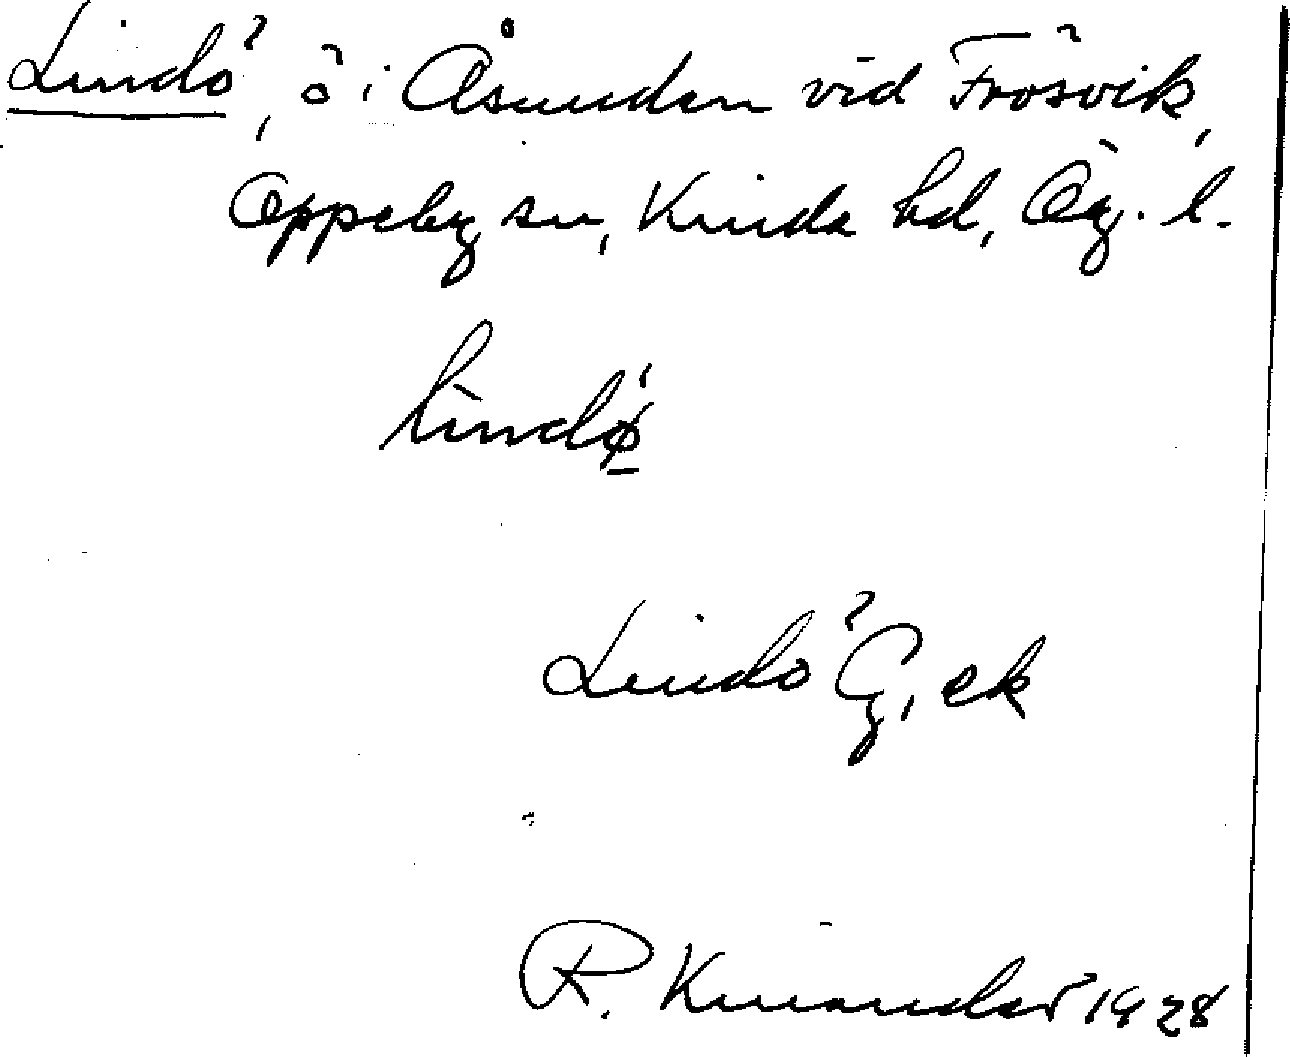 Lindö, ö i Åsunden vid Frösvik,
Oppeby sn, Kinda hd, Ög. l.
lìndǿ̲
Lindö G, ek
R. Kinander 1928